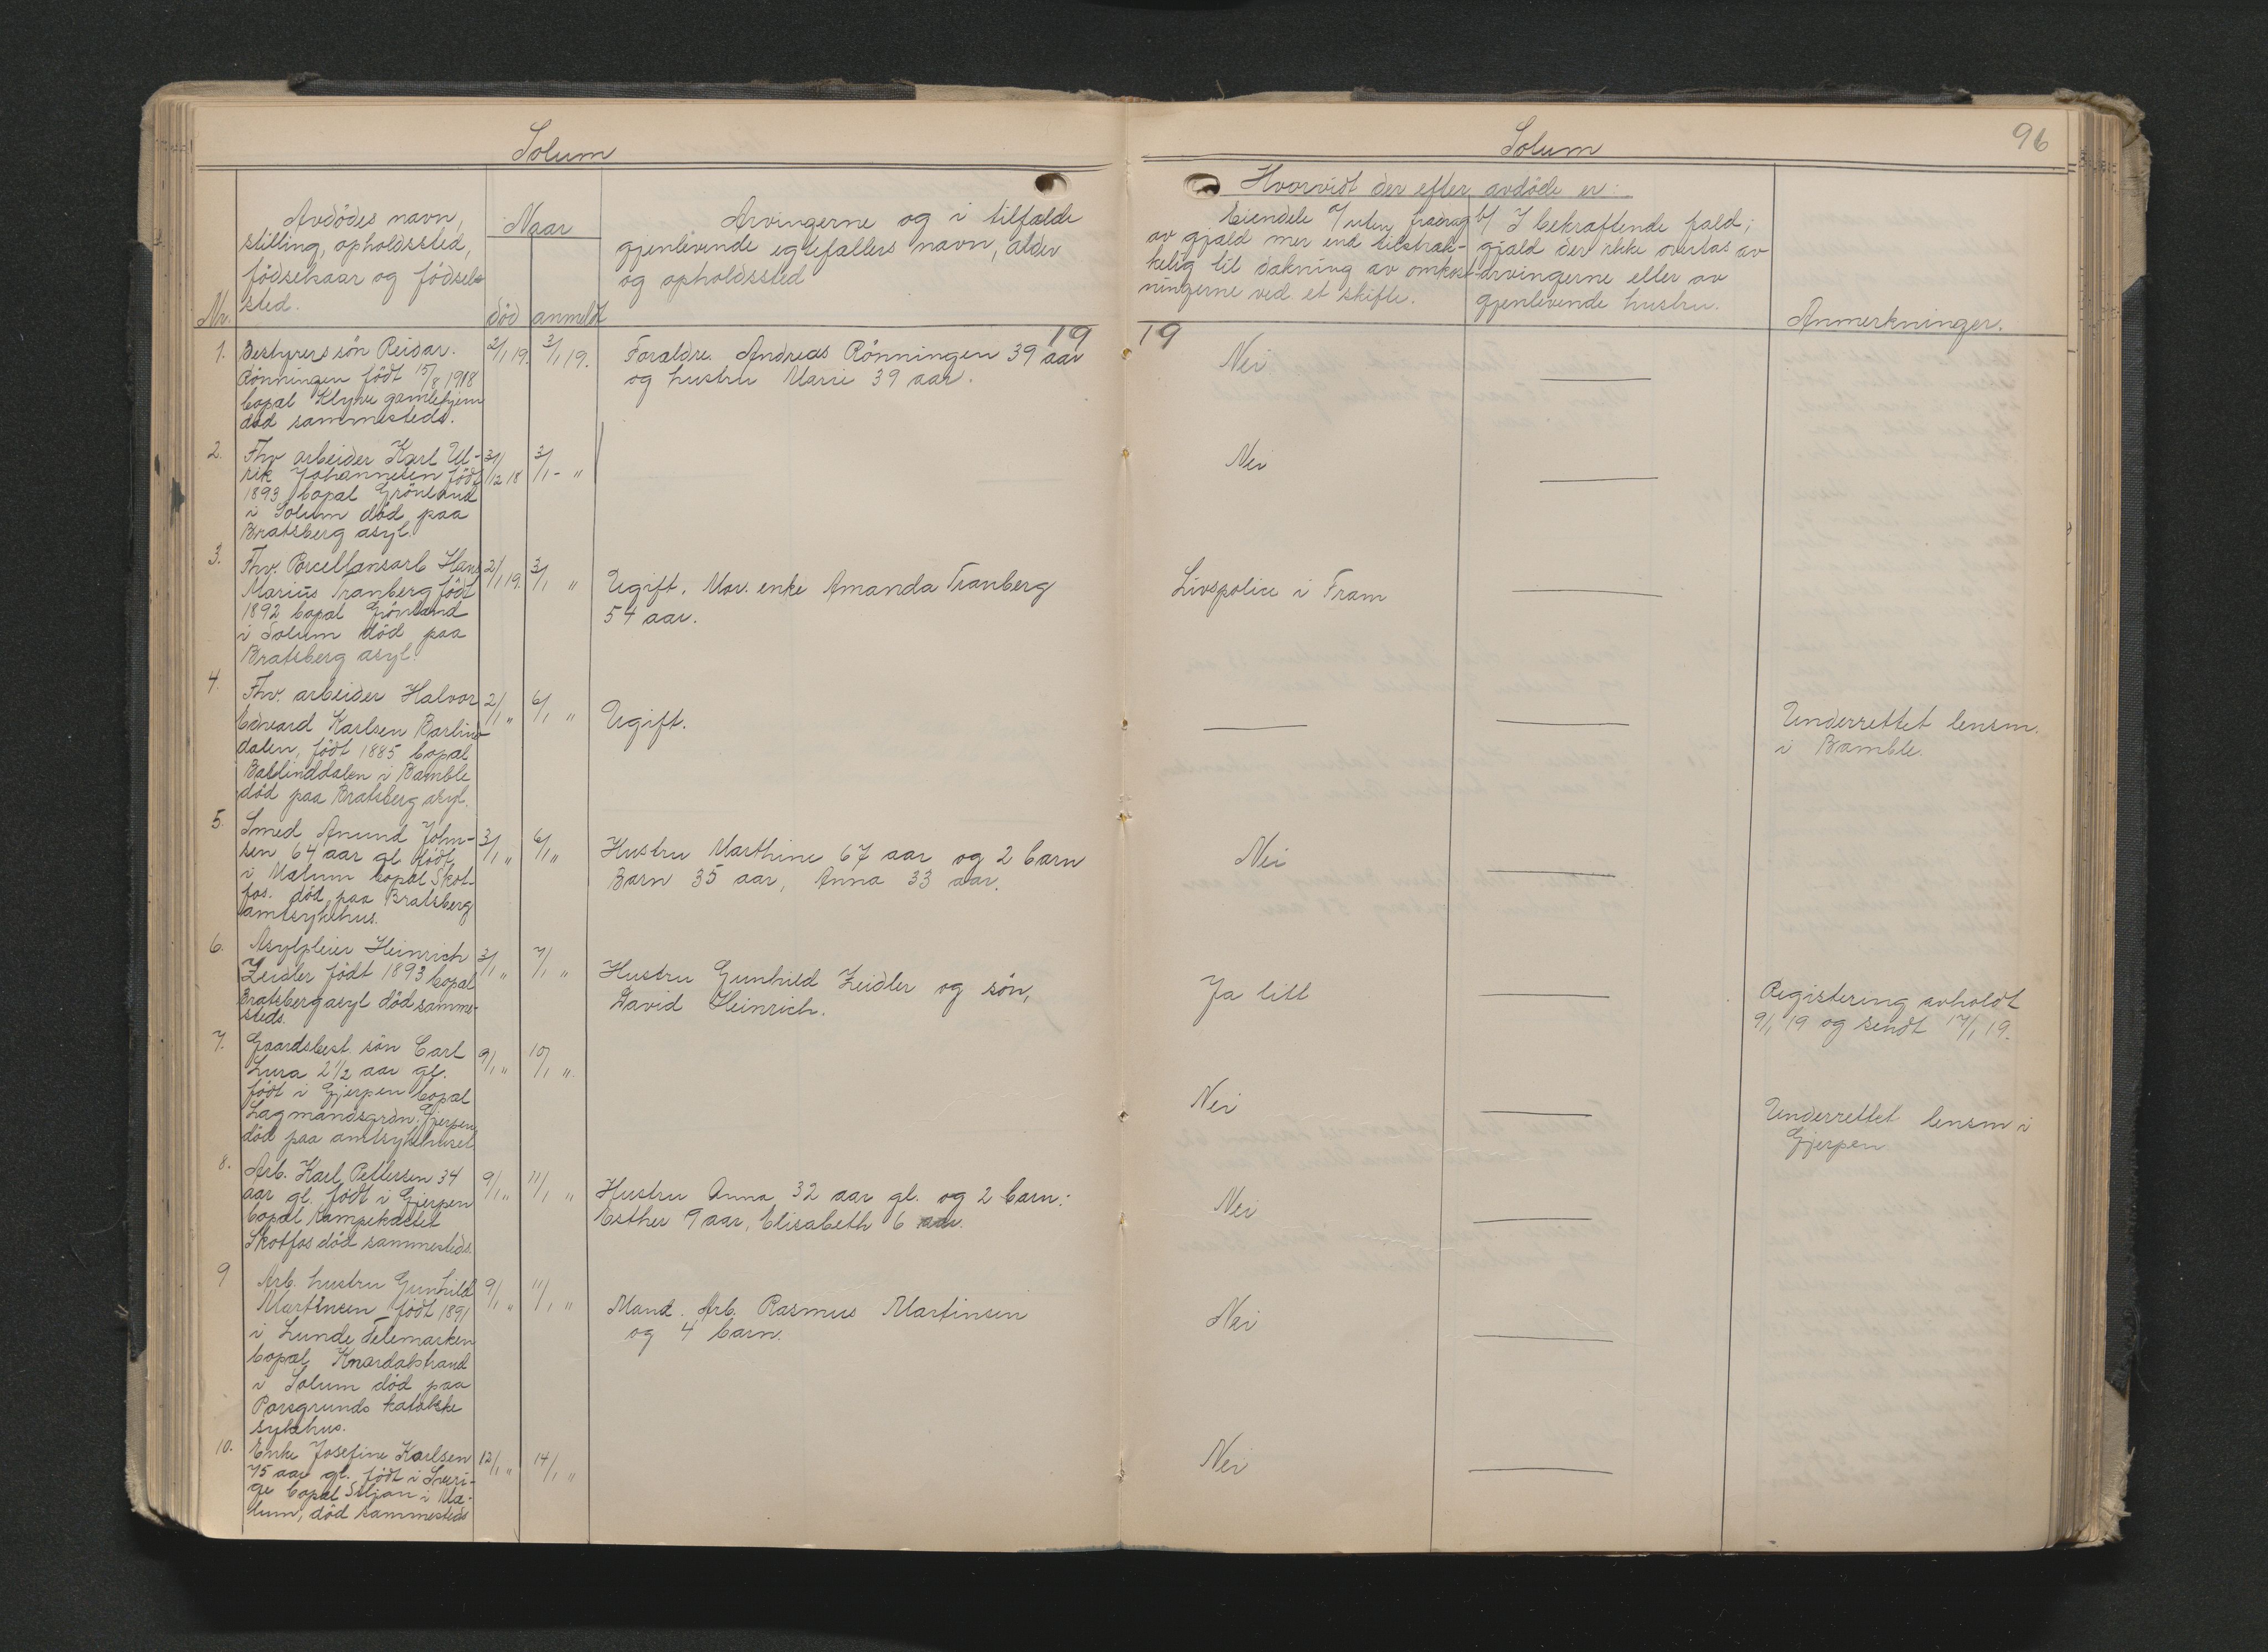 Solum
Solum
96
Nr.
Avdödes navn,
stilling, opholdssted,
födselsaar og födsels
sted.
Naar
död
anmeldt
Arvingerne og i tilfælde
gjenlevende egtefællers navn, alder
og opholdssted
Hvorvidt der efter avdöde er:
Eiendele a/ uten fradrag
av gjæld mer end tilstræk-
kelig til dækning av omkost-
ningerne ved et skifte.
b/ I bekræftende fald;
gjæld der ikke overtas av
arvingerne eller av
gjenlevende hustru.
Anmerkninger.
19
19
1.
Bestyrers sön Reidar.
Rönningen födt 15/8 1918
bopæl Klyve gamlehjem
död sammesteds.
2/1 19.
3/1 19.
Forældre. Andreas Rönningen 39 aar
og hustru Marie 39 aar.
Nei
2.
Fhv arbeider Karl Ul-
rik Johannesen födt
1893 bopæl Grönland
i Solum död paa
Bratsberg asyl.
31/12 18
3/1 - "
Nei
3.
Fhv. Porcellansarb Hans
Marius Tranberg födt
1892 bopæl Grönland
i Solum död paa
Bratsberg asyl.
2/1 19.
3/1 "
Ugift. Mor. enke Amanda Tranberg
54 aar.
Livspolice i Fram
4.
Fhv. arbeider Halvor
Edvard Karlsen Barlind
dalen, födt 1885 bopæl
Barlinddalen i Bamble
död paa Bratsberg asyl.
2/1 "
6/1 "
Ugift.
Underrettet lensm.
i Bamble.
5.
Smed Anund John-
sen 64 aar gl. födt
i Mælum bopæl Skot-
fos. död paa Bratsberg
amtsykehus.
3/1 "
6/1 "
Hustru Marthine 67 aar og 2 barn
Barn 35 aar, Anna 33 aar.
Nei
6.
Asylpleier Heinrich
Zeidler födt 1893 bopæl
Bratsberg asyl död samme-
steds.
3/1 "
7/1 "
Hustru Gunhild Zeidler og sön,
David Heinrich.
Ja litt
Registering avholdt
9/1 19 og sendt 17/1 19.
7.
Gaardsbest. sön Carl
Lura 2 1/2 aar gl.
födt i Gjerpen bopæl
Lagmandsgrdn. Gjerpen
död paa amtsykehuset
9/1 "
10/1 "
Nei
Underrettet lensm i
Gjerpen
8.
Arb. Karl Pettersen 34
aar gl. födt i Gjerpen
bopæl Kampekastet
Skotfos död sammesteds.
9/1 "
11/1 "
Hustru Anna 32 aar gl. og 2 barn:
Esther 9 aar, Elisabeth 6 aar.
Nei
9
Arb. hustru Gunhild
Martinsen födt 1891
i Lunde Telemarken
bopæl Knardalstrand
i Solum död paa
Porsgrunds katolske
sykehus.
9/1 "
11/1 "
Mand. Arb. Rasmus Martinsen
og 4 barn.
Nei
10.
Enke Josefine Karlsen
75 aar gl. födt i Sveri-
ge bopæl Siljan i Mæ-
lum, död sammesteds
12/1 "
14/1 "
Nei